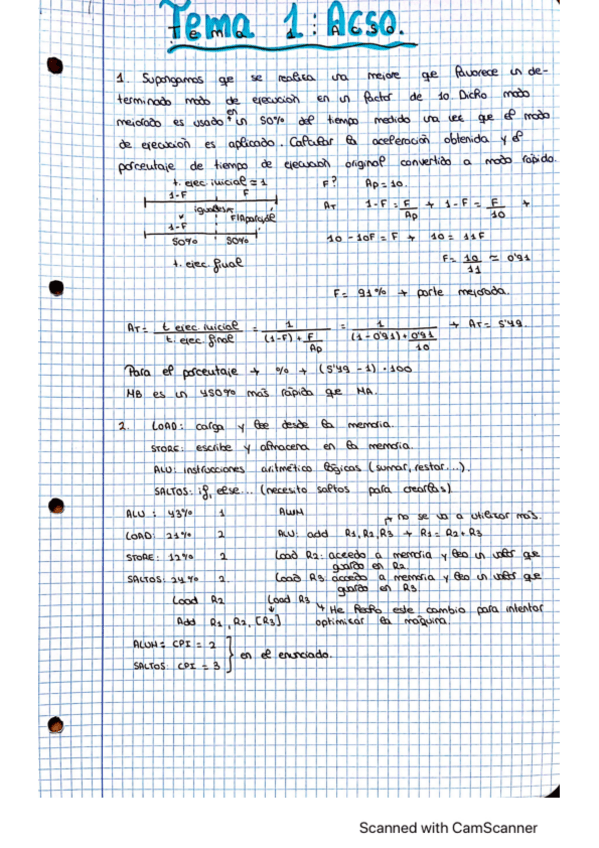 Tema 1: Acso.
1. Supongamos que se realiza una mejora que favorece un de-
terminado modo de ejecución en un factor de 10. Dicho modo
mejorado es usado en un 50% del tiempo medido una vez que el modo
de ejecución es aplicado. Calcular la aceleración obtenida y el
porcentaje de tiempo de ejecución original convertido a modo rápido.
t. ejec inicial = 1 F? Ap = 10.
1-F F
igualarse F/Ap
1-F
50% 50%
t. ejec. final
1-F = F/Ap → 1-F = F/10 →
10 - 10F = F → 10 = 11F
F = 10/11 ≈ 0'91
F = 91% → parte mejorada.
AT = t ejec. inicial / t. ejec. final = 1 / ((1-F) + F/Ap) = 1 / ((1-0'91) + 0'91/10) → AT = 5'49.
Para el porcentaje → % → (5'49 - 1) · 100
MB es un 450% más rápida que MA.
2. LOAD: carga y lee desde la memoria.
STORE: escribe y almacena en la memoria.
ALU: instrucciones aritmético lógicas (sumar, restar...).
SALTOS: if, else... (necesito saltos para crearlas)
ALU: 43% 1 ALUM
→ no se va a utilizar más.
LOAD: 21% 2 ALU: add R1, R2, R3 → R1 = R2 + R3
STORE: 12% 2 Load R2: accedo a memoria y leo un valor que
guardo en R2
SALTOS: 24% 2. Load R3 accedo a memoria y leo un valor que
guardo en R3.
Load R2 Load R3 → He hecho este cambio para intentar
Add R1, R2, [R3] optimizar la máquina.
ALUM = CPI = 2
SALTOS: CPI = 3 } en el enunciado.
Scanned with CamScanner